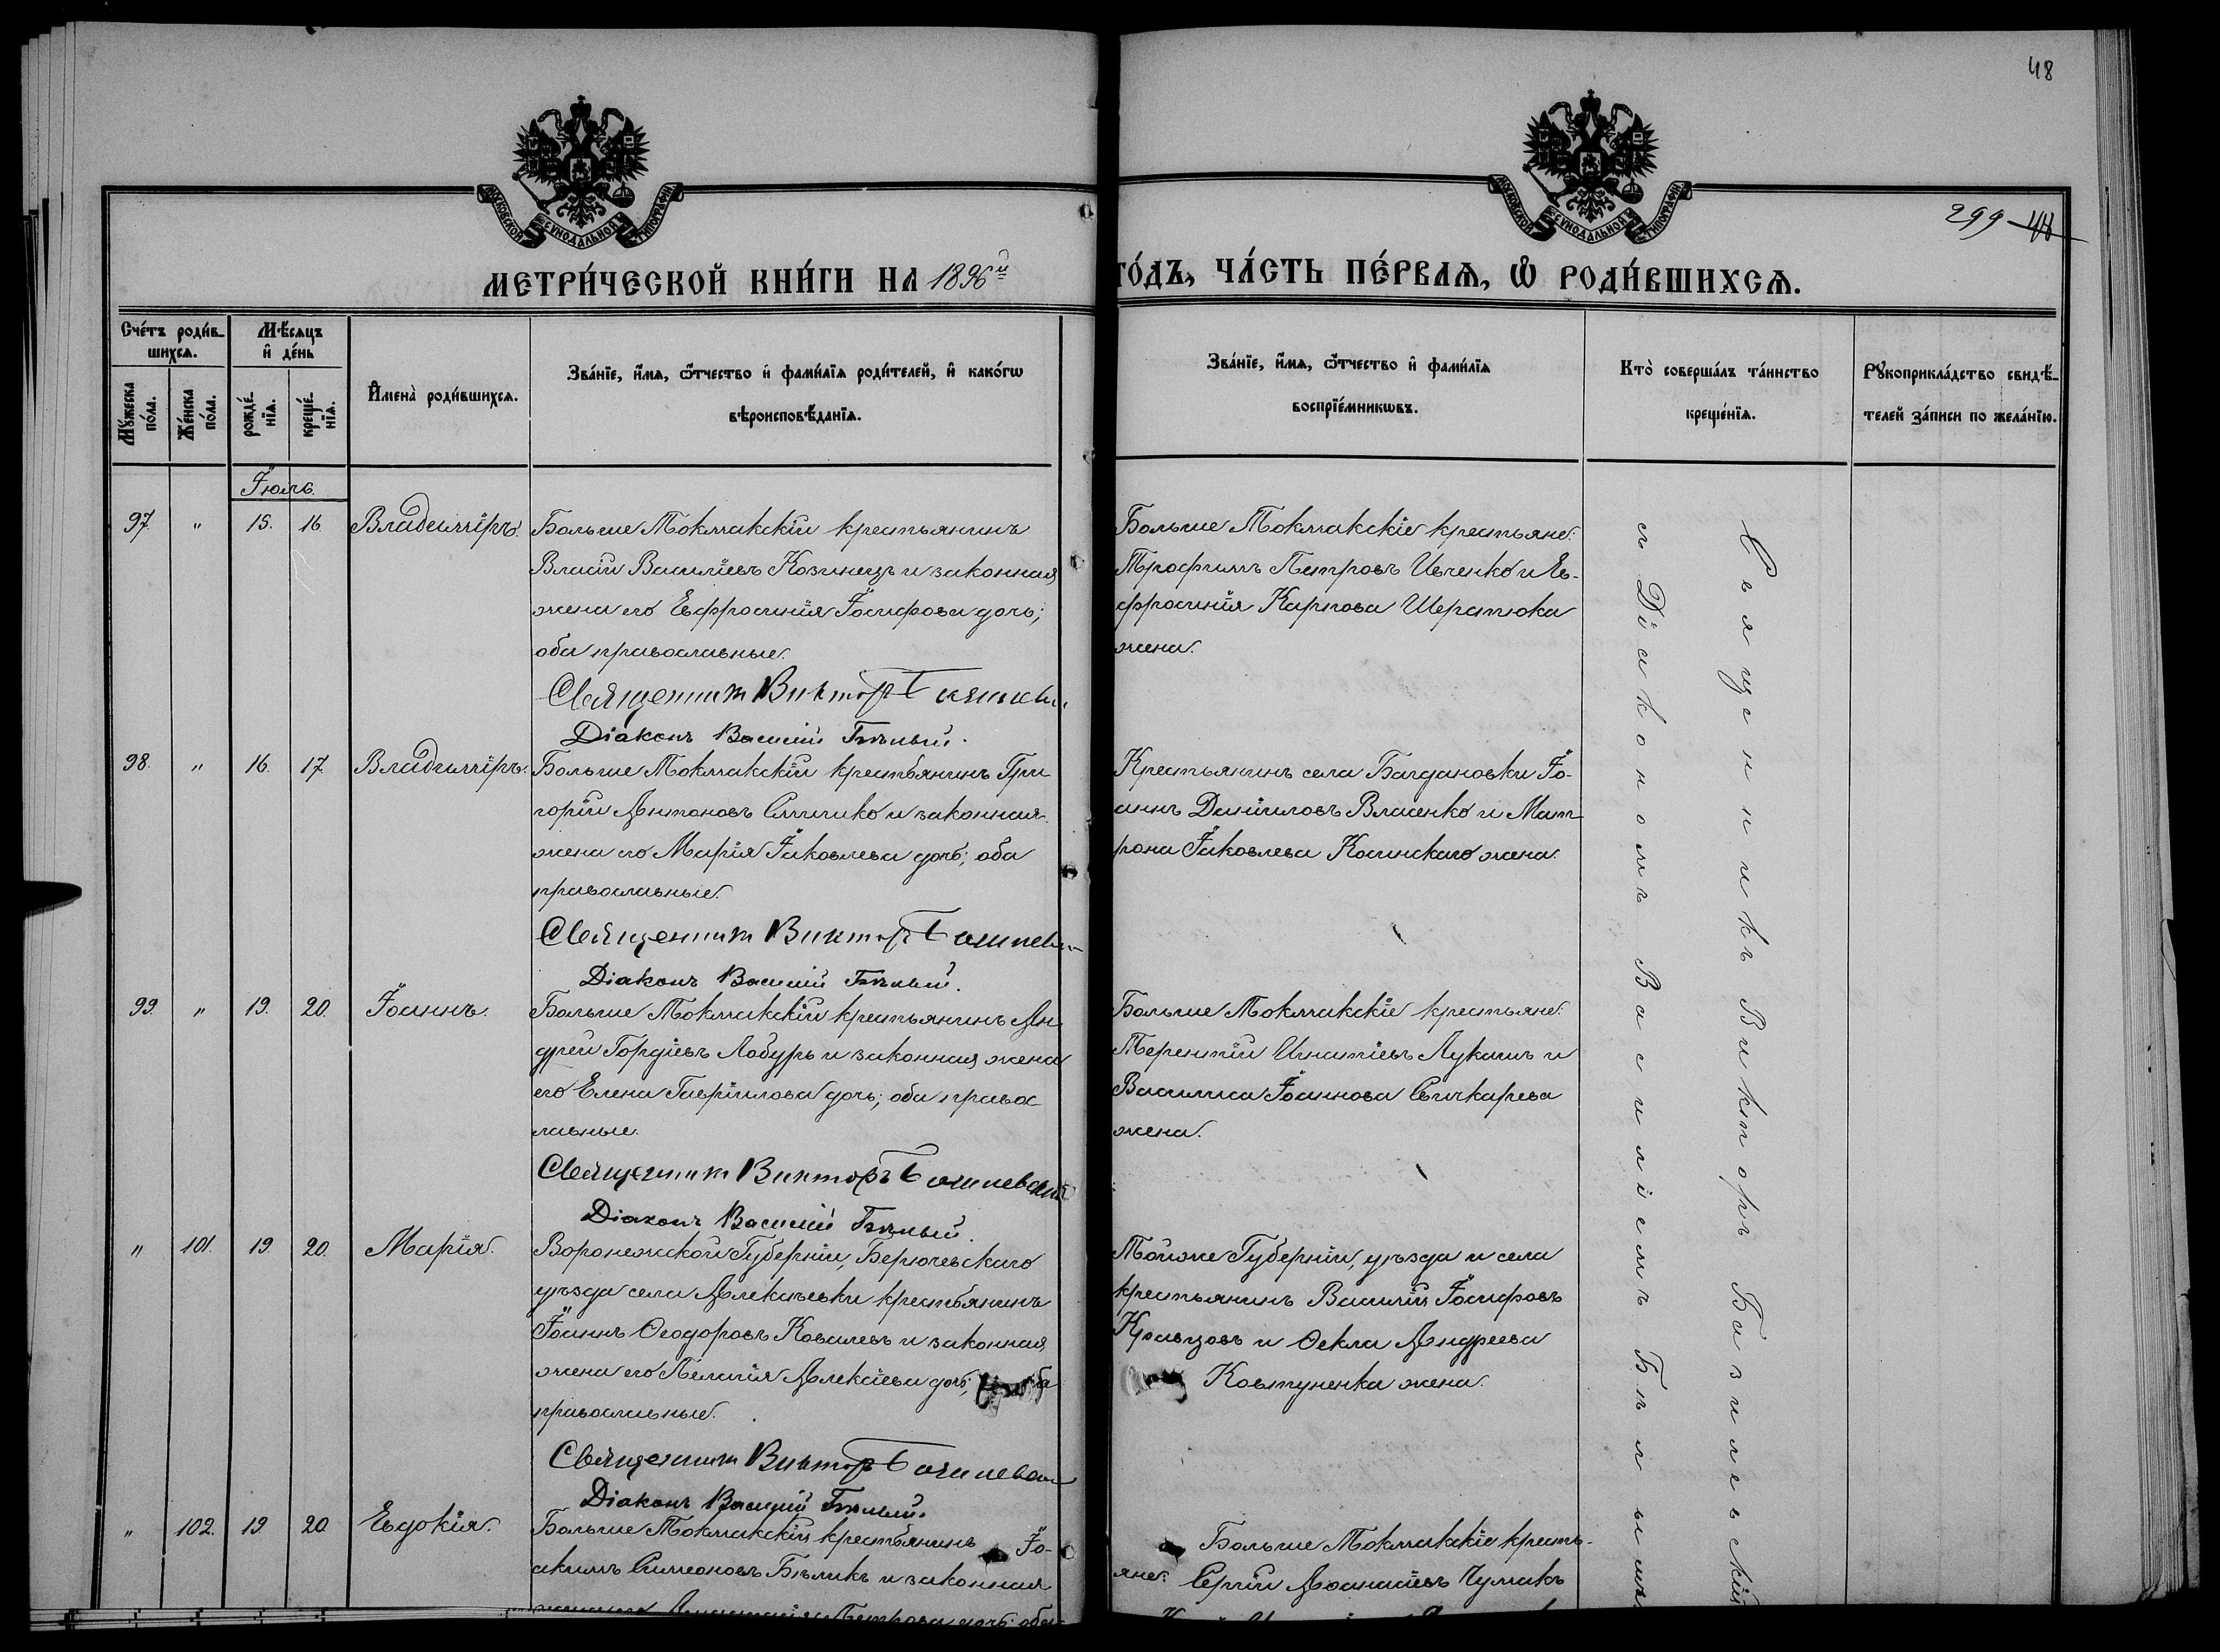 48
МОСКОВСКОЙ СѴНОДАЛЬНОЙ ТИПОГРАФІИ
МОСКОВСКОЙ СѴНОДАЛЬНОЙ ТИПОГРАФІИ
299 48
МЕТРИ́ЧЕСКОЙ КНИ́ГИ НА 1896й
ГО́ДЪ, ЧА́СТЬ ПЕ́РВАѦ, Ѡ РОДИ́ВШИХСѦ.
Сче́тъ роди́в-
шихсѧ.
Мꙋжеска по́ла.
Же́нска по́ла.
Мѣ́сѧцъ
и де́нь
рожде́-
нїѧ.
креще́-
нїѧ.
Имена̀ роди́вшихсѧ.
Зва́нїе, и́мѧ, ѻ҆́тчество и фами́лїѧ роди́телей, и како́гѡ
вѣроисповѣ́данїѧ.
Зва́нїе, и́мѧ, ѻ҆́тчество и фами́лїѧ
воспрїе́мникѡвъ.
Кто̀ соверша́лъ та́инство
креще́нїѧ.
Рꙋкоприкла́дство свидѣ́-
телей за́писи по жела́нїю.
Іюль.
97. " 15. 16. Владиміръ.
Больше Токмакскій крестьянинъ
Власій Василіевъ Козинецъ и законная
жена его Евфросинія Іосифова дочь;
оба православные.
Священник Виктор Базилевск
Діаконъ Василій Бѣлый.
Больше Токмакскіе крестьяне:
Трофимъ Петровъ Ивченко и Ев-
фросинія Карпова Шерстюка
жена.
98. " 16. 17. Владиміръ.
Больше Токмакскій крестьянинъ Гри
горій Антоновъ и законная
жена его Марія Іаковлева дочь; оба
православные.
Священник Виктор Базилевск
Діаконъ Василій Бѣлый.
Крестьянинъ села Багдановки Іо-
аннъ Даніиловъ Власенко и Мат
рона Іаковлева Косинскаго жена.
99. " 19. 20. Іоаннъ.
Больше Токмакскій крестьянинъ Ан
дрей Гордіевъ Лобуръ и законная жена
его Елена Гавріилова дочь; оба правос
лавные.
Священник Викторъ Базилевский
Діаконъ Василій Бѣлый.
Больше Токмакскіе крестьяне:
Терентій Игнатіевъ Лукашъ и
Василиса Іоаннова Свичкарева
жена.
" 101. 19. 20. Марія.
Воронежской Губерніи, Берючевскаго
уѣзда села Алексѣевки крестьянинъ
Іоаннъ Ѳеодоровъ Ковалевъ и законная
жена его Пелагія Алексіева дочь; оба
православные.
Священник Виктор Базилевск
Діаконъ Василій Бѣлый.
Тойже Губерніи, уѣзда и села
крестьянинъ Василій Іосифовъ
Кравцовъ и Ѳекла Андреева
Ковтуненка жена.
" 102. 19. 20. Евдокія.
Больше Токмакскій крестьянинъ Іо-
акимъ Симеоновъ Бѣликъ и законная
жена его Анастасія Петрова дочь; оба
Больше Токмакскіе кресть-
яне: Сергій Аѳанасіевъ Чумакъ
Священникъ Викторъ Базилевскій
съ Діакономъ Василіемъ Бѣлымъ.